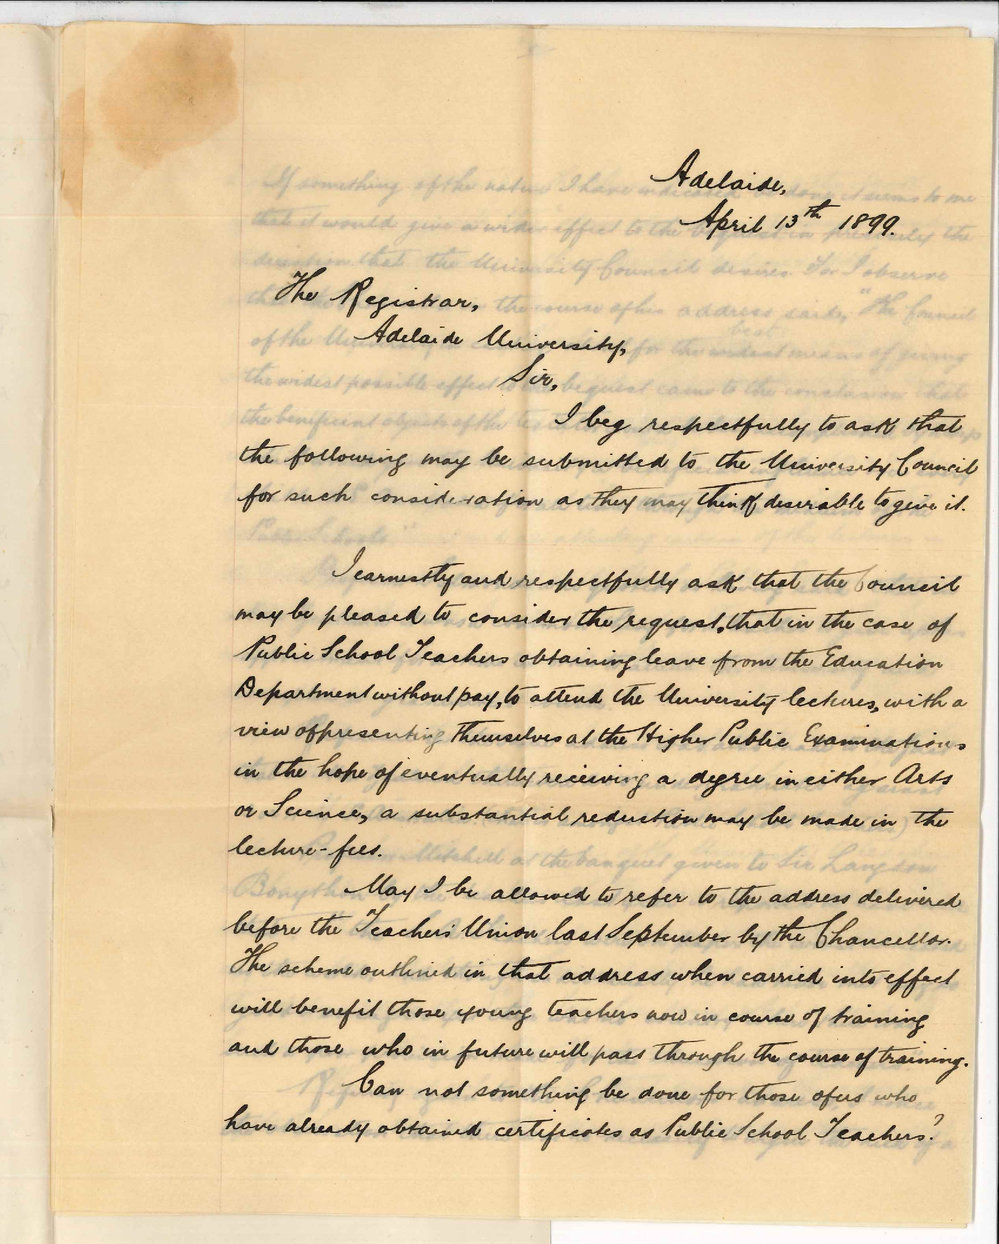 Adelaide,
April 13th 1899.
The Registrar,
Adelaide University,
Sir,
I beg respectfully to ask that
the following may be submitted to the University Council
for such consideration as they may think desirable to give it.
I earnestly and respectfully ask that the Council
may be pleased to consider the request, that in the case of
Public School Teachers obtaining leave from the Education
Department without pay, to attend the University lectures, with a
view of presenting themselves at the Higher Public Examinations
in the hope of eventually receiving a degree in either Arts
or Science, a substantial reduction may be made in the
lecture-fees.
May I be allowed to refer to the address delivered
before the Teachers' Union last September by the Chancellor.
The scheme outlined in that address when carried into effect
will benefit those young teachers now in course of training
and those who in future will pass through the course of training.
Can not something be done for those of us who
have already obtained certificates as Public School Teachers?